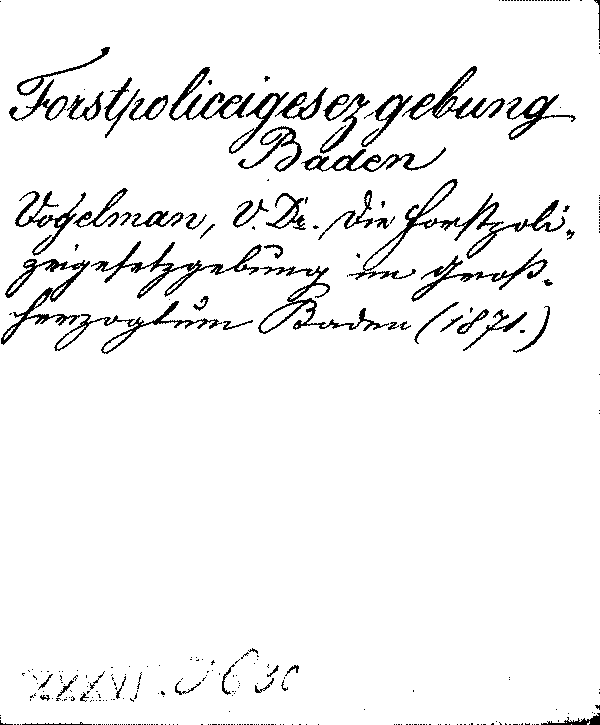 Forstpoliceigesezgebung
Baden
Vogelman, V. Dr. Die Forstpoli-
zeigesetzgebung im Groß-
herzogtum Baden (1871.)
XXXVI.